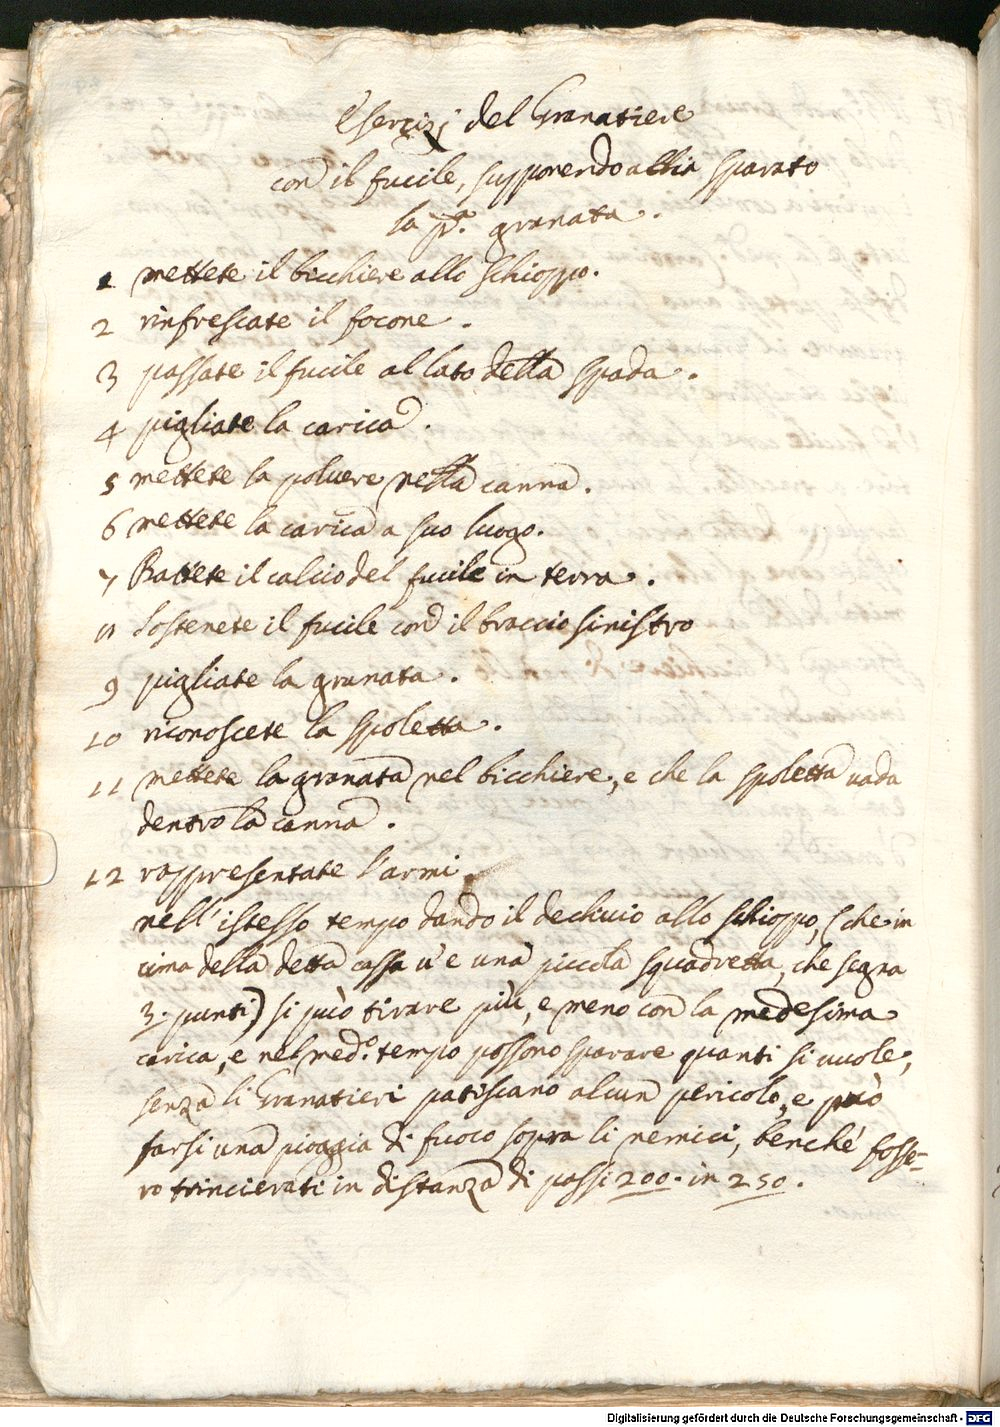 Esercizj del Granatiere
con il fucile, supponendo abbia sparato
la p.ª granata.
1 mettete il bicchiere allo schioppo.
2 rinfrescate il focone.
3 passate il fucile al lato della spada.
4 pigliate la carica.
5 mettete la poluere nella canna.
6 mettete la carica a suo luogo.
7 Battete il calcio del fucile in terra.
8 Sostenete il fucile con il braccio sinistro
9 pigliate la granata.
10 riconoscete la spoletta.
11 mettete la granata nel bicchiere, e che la spoletta uada
dentro la canna.
12 rappresentate l'armi.
nell'istesso tempo dando il dechiuio allo schioppo, (che in
cima della detta cassa u'e una piccola squadretta, che segna
3. punti) si può tirare più, e meno con la medesima
carica, e nel med.º tempo possono sparare quanti si uuole,
senza li Granatieri patiscano alcun pericolo, e può
farsi una pioggia di fuoco sopra li nemici, benché fosse=
ro trincierati in distanza di passi 200. in 250.
Digitalisierung gefördert durch die Deutsche Forschungsgemeinschaft - DFG